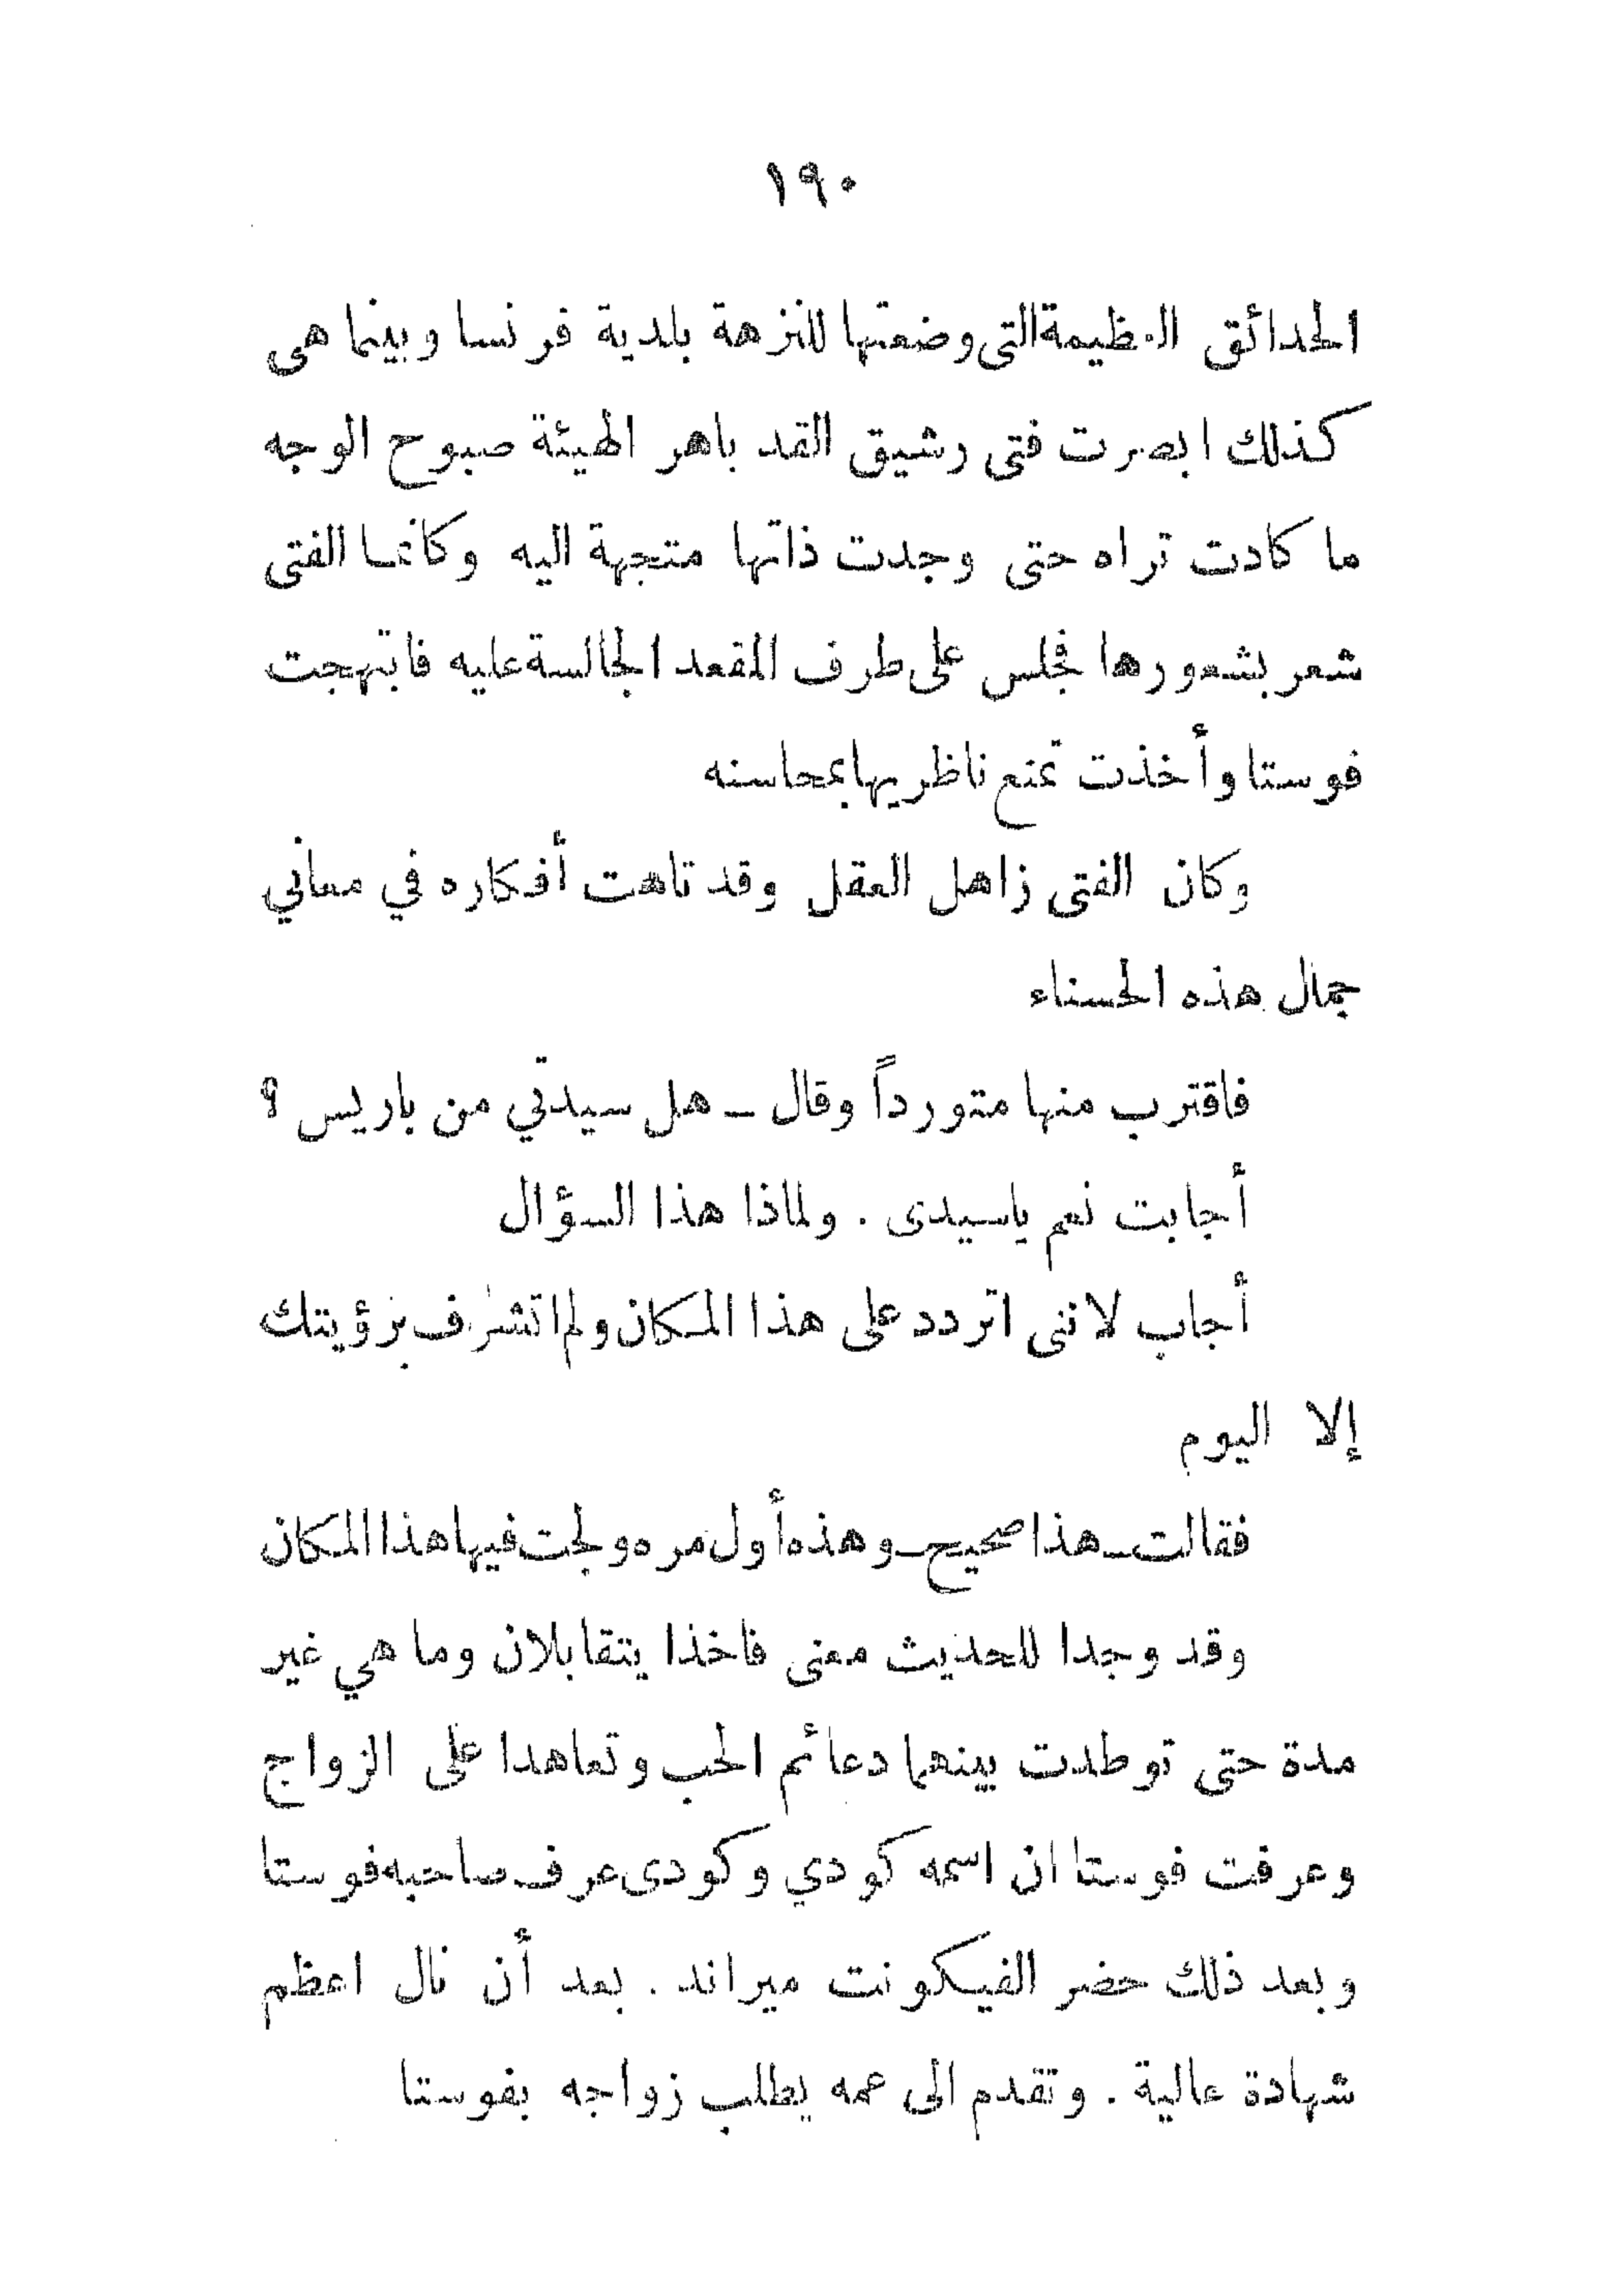 ١٩٠
الحدائق العظيمة التى وضعتها للنزهة بلدية فرنسا وبينما هى
كذلك ابصرت فتى رشيق القد باهر الهيئة صبوح الوجه
ما كادت تراه حتى وجدت ذاتها متجهة اليه وكأنما الفتى
شعر بشعورها فجلس على طرف المقعد الجالسة عليه فابتهجت
فوستا وأخذت تمنع ناظريها بمحاسنه
وكان الفتى زاهل العقل وقد تاهت أفكاره في معاني
جمال هذه الحسناء
فاقترب منها متورداً وقال ـ هل سيدتي من باريس ؟
أجابت نعم ياسيدى . ولماذا هذا السؤال
أجاب لاننى اتردد على هذا المكان ولم اتشرف برؤيتك
إلا اليوم
فقالت ـ هذا صحيح ـ وهذه أول مره ولجت فيها هذا المكان
وقد وجدا للحديث معنى فاخذا يتقابلان وما هي غير
مدة حتى توطدت بينهما دعائم الحب وتعاهدا على الزواج
وعرفت فوستا ان اسمه كودي وكودى عرف صاحبه فوستا
وبعد ذلك حضر الفيكونت ميراند . بعد أن نال اعظم
شهادة عالية . وتقدم الى عمه يطلب زواجه بفوستا